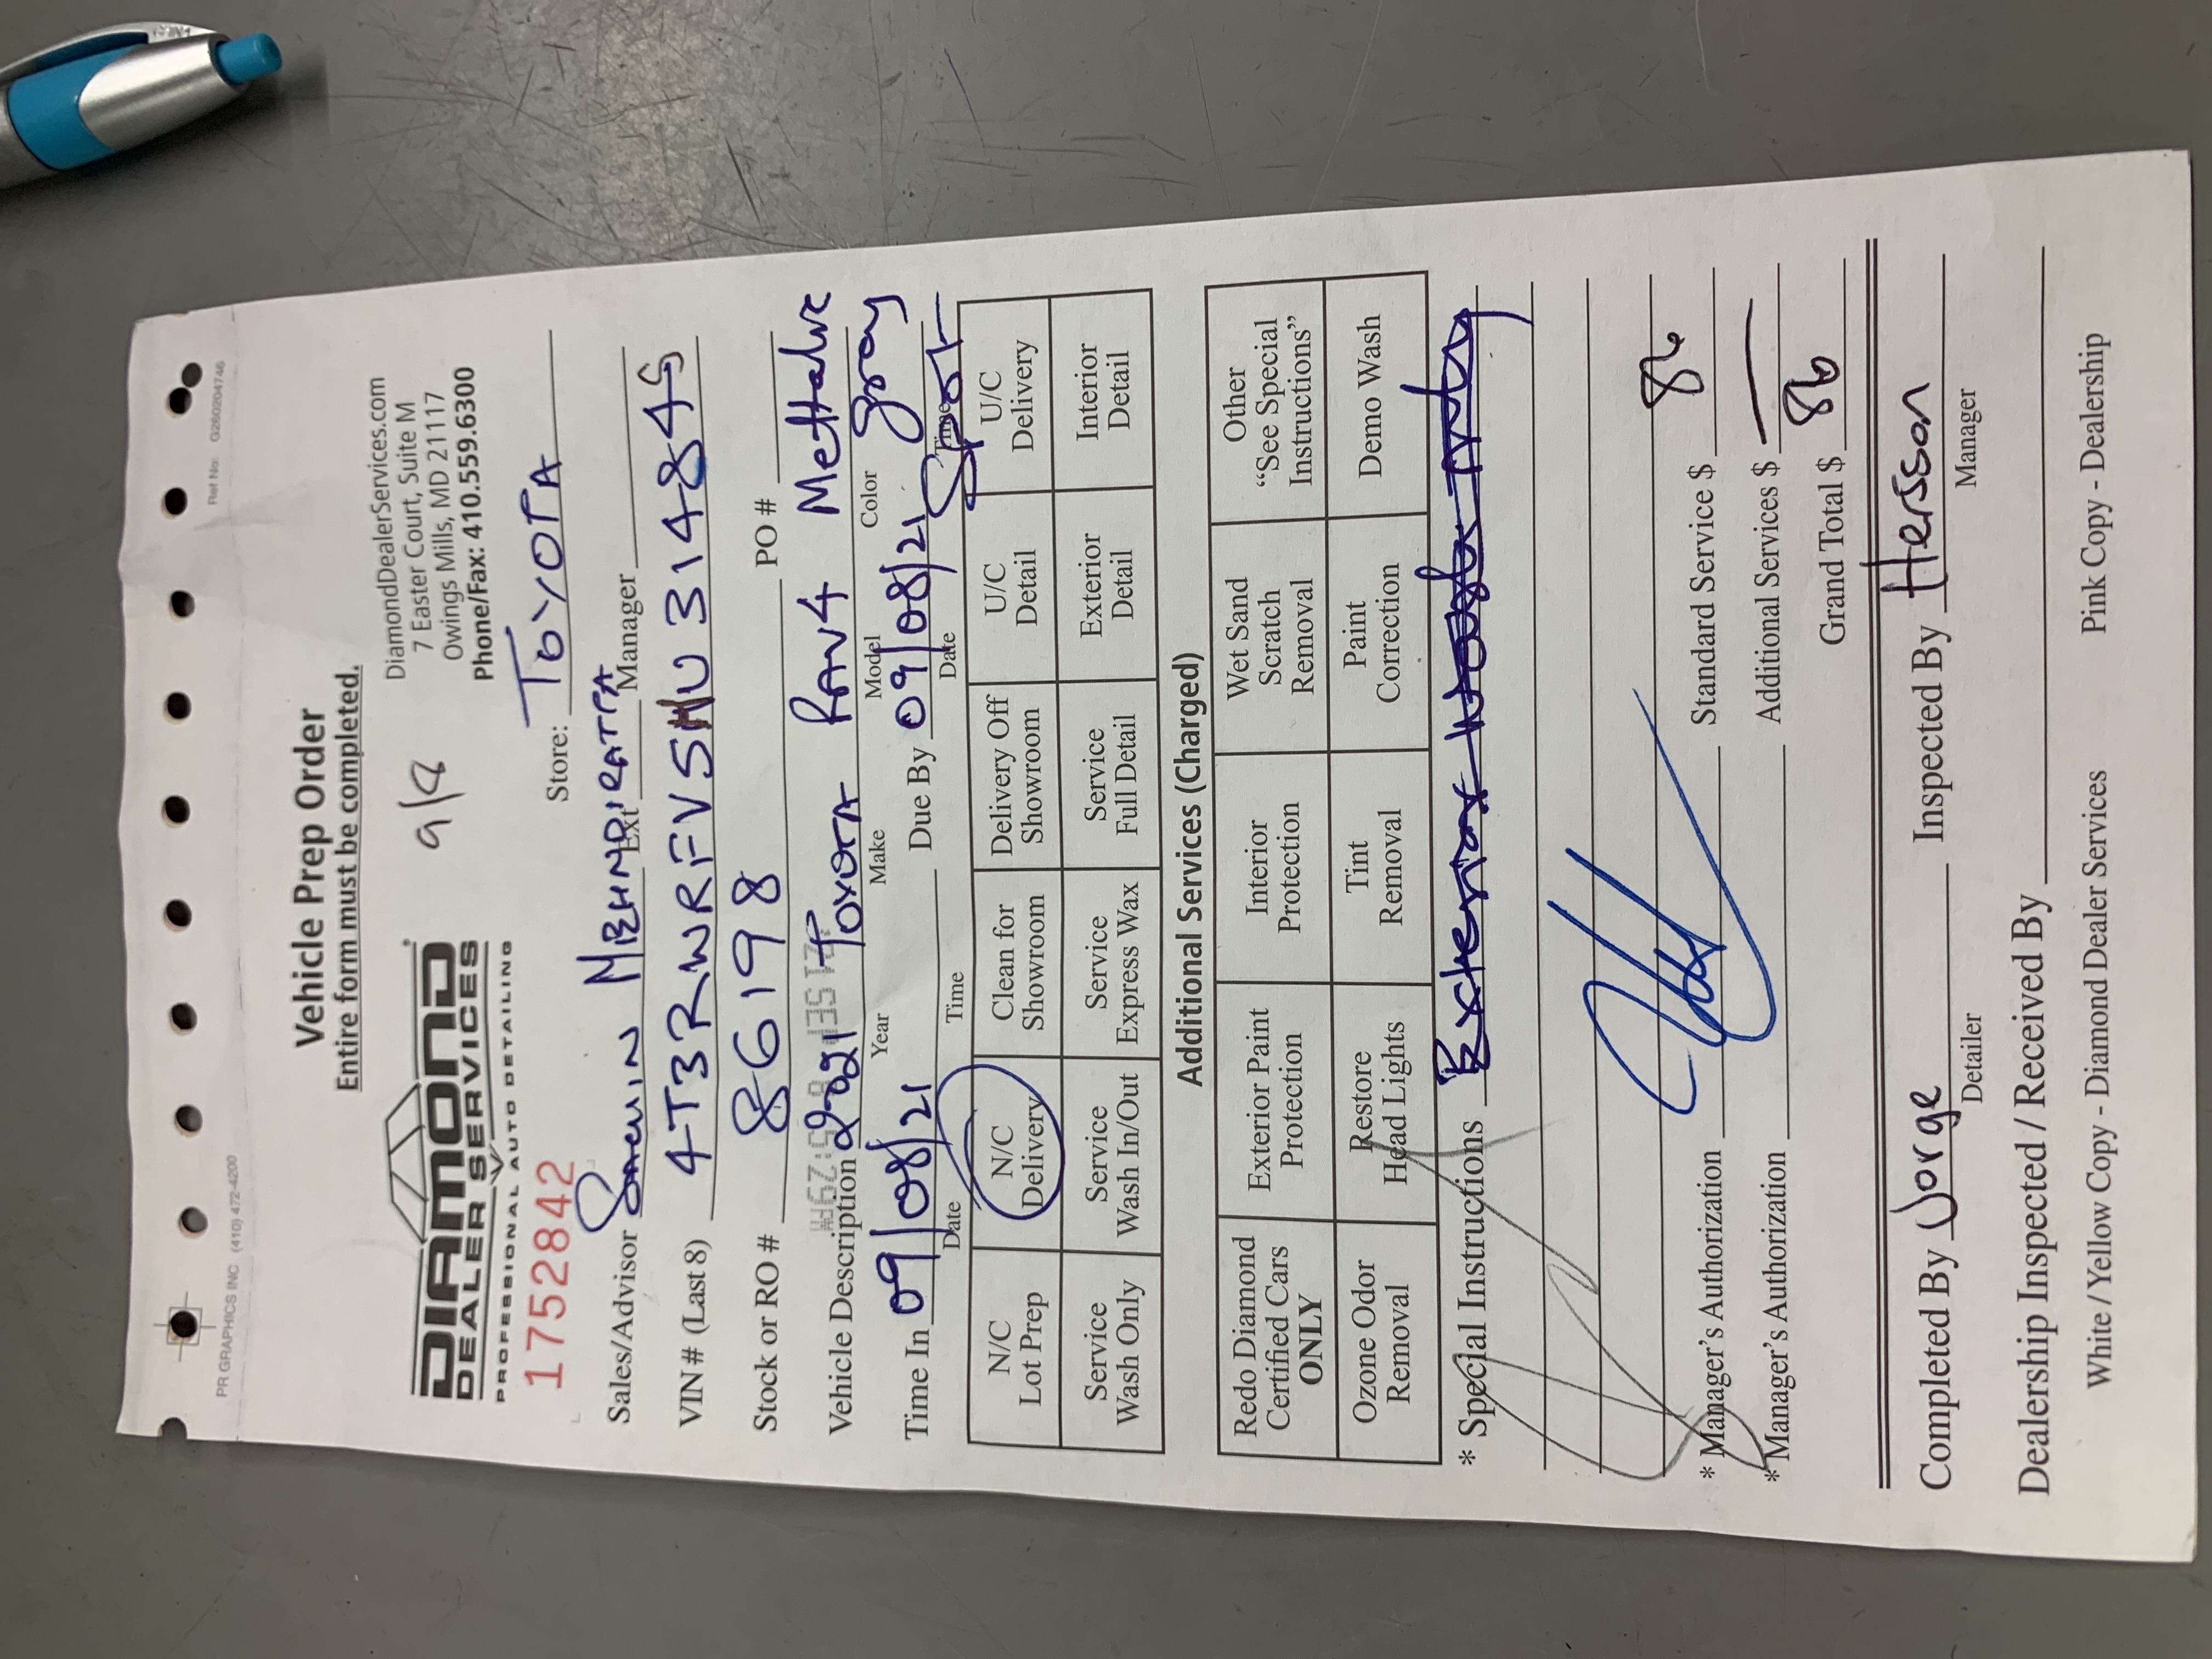 PR GRAPHICS INC (410) 472-4200 Ref No: G2602204746
Vehicle Prep Order
Entire form must be completed.
DIAMOND
DEALER SERVICES
PROFESSIONAL AUTO DETAILING
9/8
DiamondDealerServices.com
7 Easter Court, Suite M
Owings Mills, MD 21117
Phone/Fax: 410.559.6300
1752842
Store: TOYOTA
Sales/Advisor Ext Manager
VIN # (Last 8) 4T3RWRFV5MU314845
Stock or RO # 86198 PO #
Vehicle Description 2021 TOYOTA RAV4 gray
Year Make Model Color
Time In 09/08/21 Due By 09/08/21 Spot
Date Time Date Time
N/C Lot Prep
N/C Delivery
Clean for Showroom
Delivery Off Showroom
U/C Detail
U/C Delivery
Service Wash Only
Service Wash In/Out
Service Express Wax
Service Full Detail
Exterior Detail
Interior Detail
Additional Services (Charged)
Redo Diamond Certified Cars ONLY
Exterior Paint Protection
Interior Protection
Wet Sand Scratch Removal
Other "See Special Instructions"
Ozone Odor Removal
Restore Head Lights
Tint Removal
Paint Correction
Demo Wash
* Special Instructions
* Manager's Authorization Standard Service $ 86
* Manager's Authorization Additional Services $ —
Grand Total $ 86
Completed By Jorge Inspected By Herson
Detailer Manager
Dealership Inspected / Received By
White / Yellow Copy - Diamond Dealer Services Pink Copy - Dealership